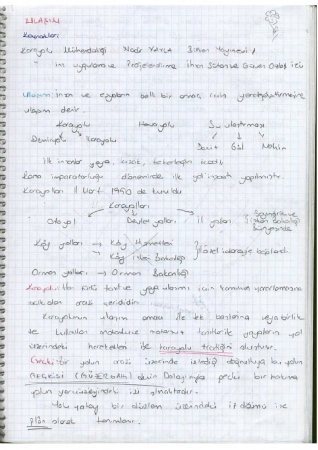 ULAŞIM
Kaynakları
Karayolu Mühendisliği Nadir YAYLA Birsen Yayınevi
" nın uygulama ve Projelendirme
Ulaşım: İnsan ve eşyaların belli bir amaç için yer değiştirmesine
ulaşım denir.
Karayolu Havayolu Su ulaştırması
Demiryolu Karayolu Deniz Göl Nehir
İlk insanlar yaya, kızak, tekerleğin icadı
Roma imparatorluğu döneminde ilk yol inşaatı yapılmıştır.
Karayolları 1 Mart 1950 de kuruldu
Karayolları
Otoyol Devlet yolları İl yolları
Köy yolları → Köy Hizmetleri
→ Köy İşleri Bakanlığı
Özel idareye bağlandı
Orman yolları → Orman Bakanlığı
Karayolu: Her türlü taşıt ve yaya ulaşımı için kamunun yararlanmasına
açık olan arazi şerididir.
Karayolunun ulaşım amacı ile tek başlarına veya birlikte
kullanılan motorlu ve motorsuz taşıtlarla yayaların yol
üzerindeki hareketleri ile karayolu trafiğini oluşturur.
Geçki: Bir yolun arazi üzerinde izlediği doğrultuya bu yolun
GEÇKİSİ (GÜZERGAH) denir. Dolayısıyla geçki bir bakıma
yolun yeryüzündeki izi olmaktadır.
Yolu yatay bir düzlem üzerindeki izdüşümü ise
plan olarak tanımlanır.